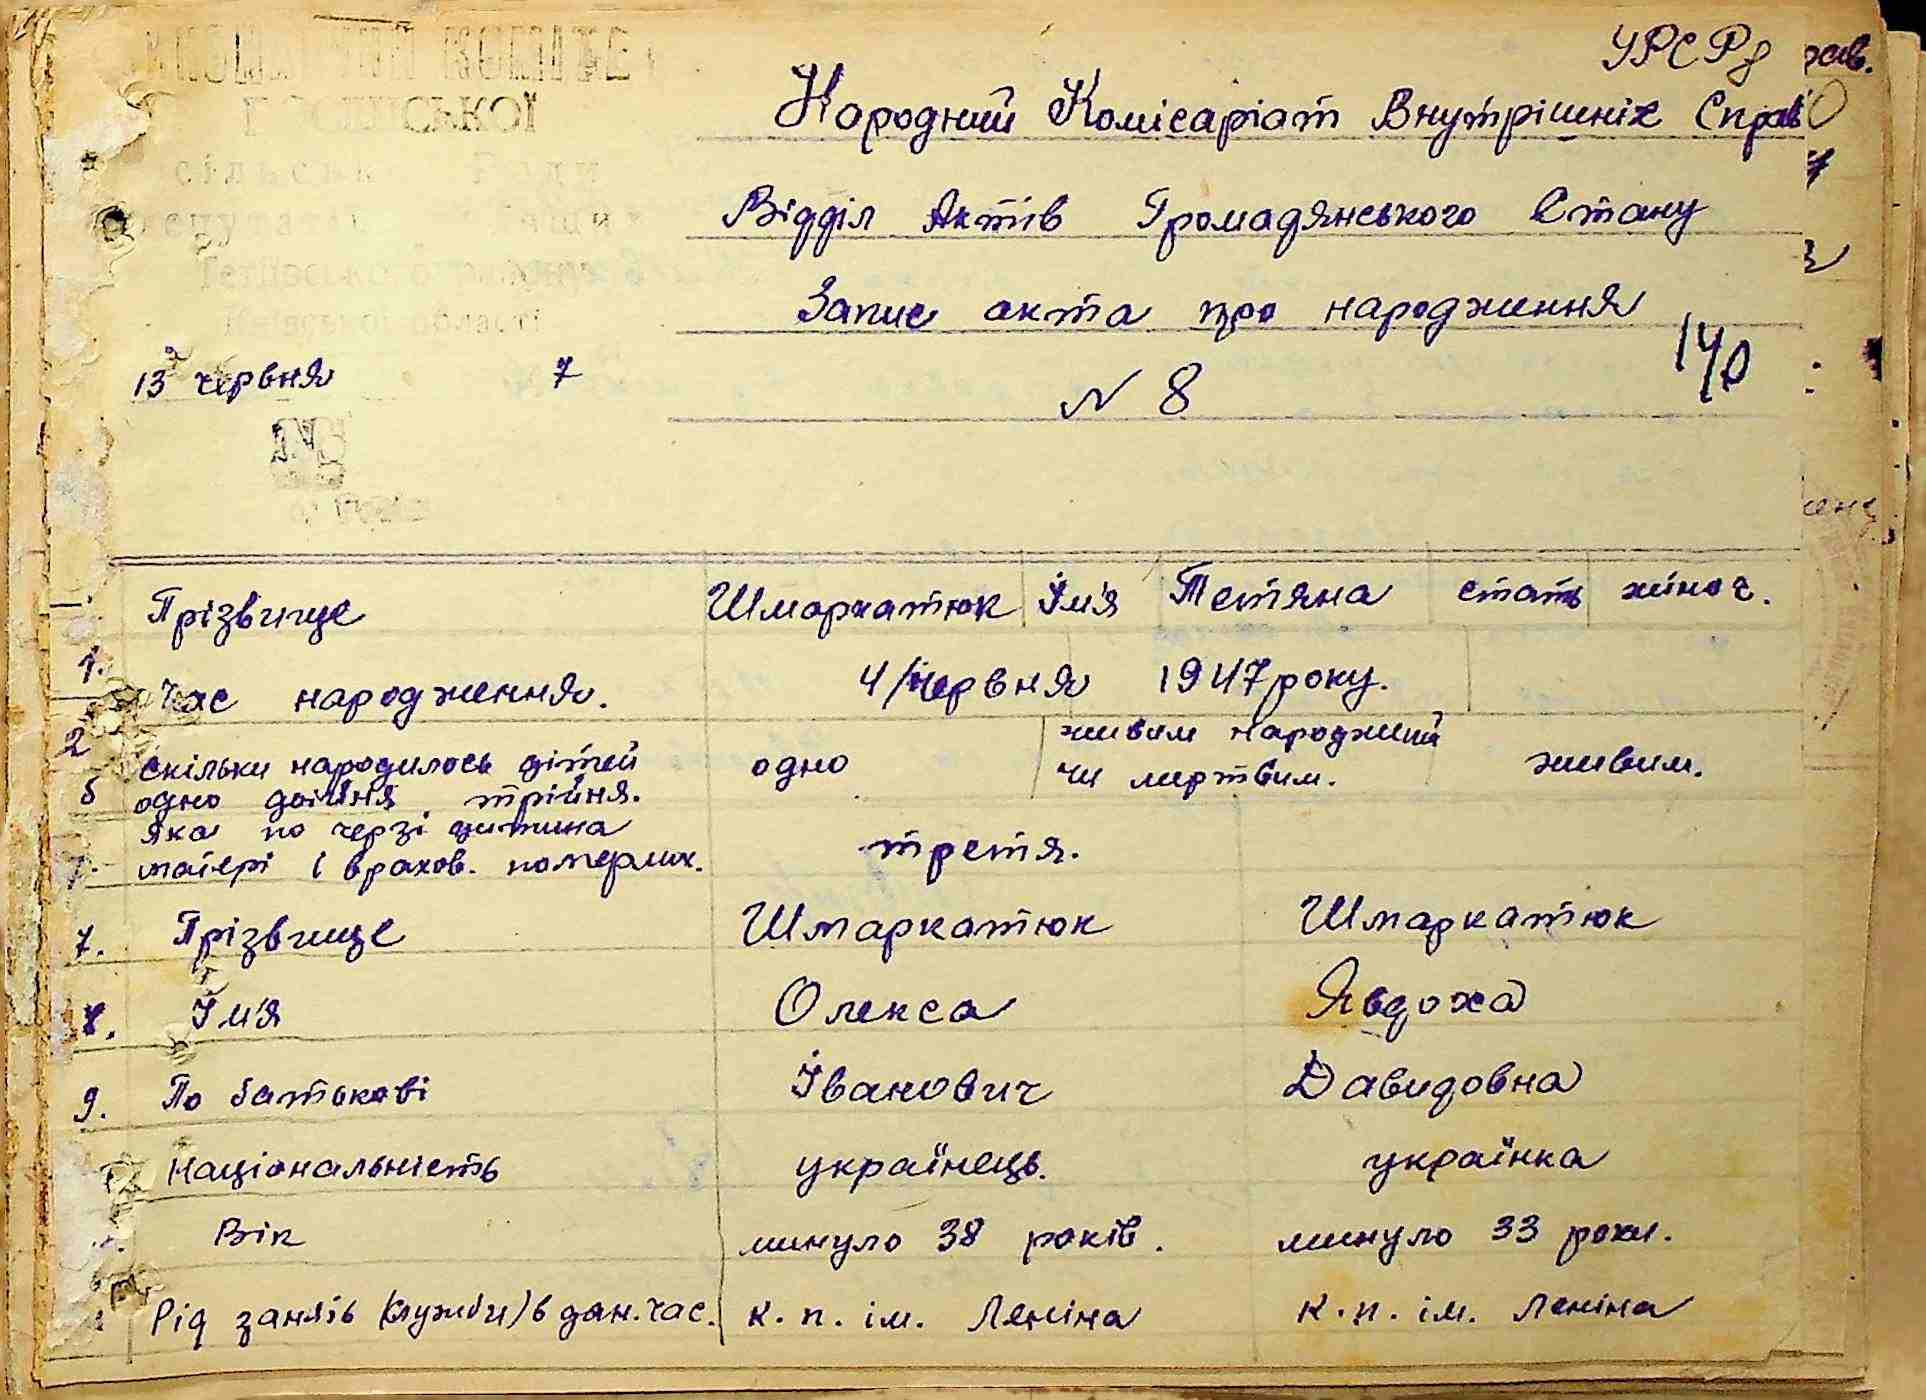 УРСР
Народний Комісаріат Внутрішніх Справ
Відділ Актів Громадянського Стану
Запис акта про народження
140
13 червня 7
N 8
Прізвище Шмаркатюк Ім'я Тетяна стать жіноч.
1. Час народження. 4/червня 1947 року.
2 скільки народилось дітей одно живим народжений
5 одно двійня трійня. чи мертвим. живим.
яка по черзі дитина третя.
матері і врахов. померлих.
7. Прізвище Шмаркатюк Шмаркатюк
8. Ім'я Олекса Явдоха
9. По батькові Іванович Давидовна
Національність українець. українка
Вік минуло 38 років. минуло 33 роки.
Рід занять (служби) в дан. час. к. п. ім. Леніна к. п. ім. Леніна